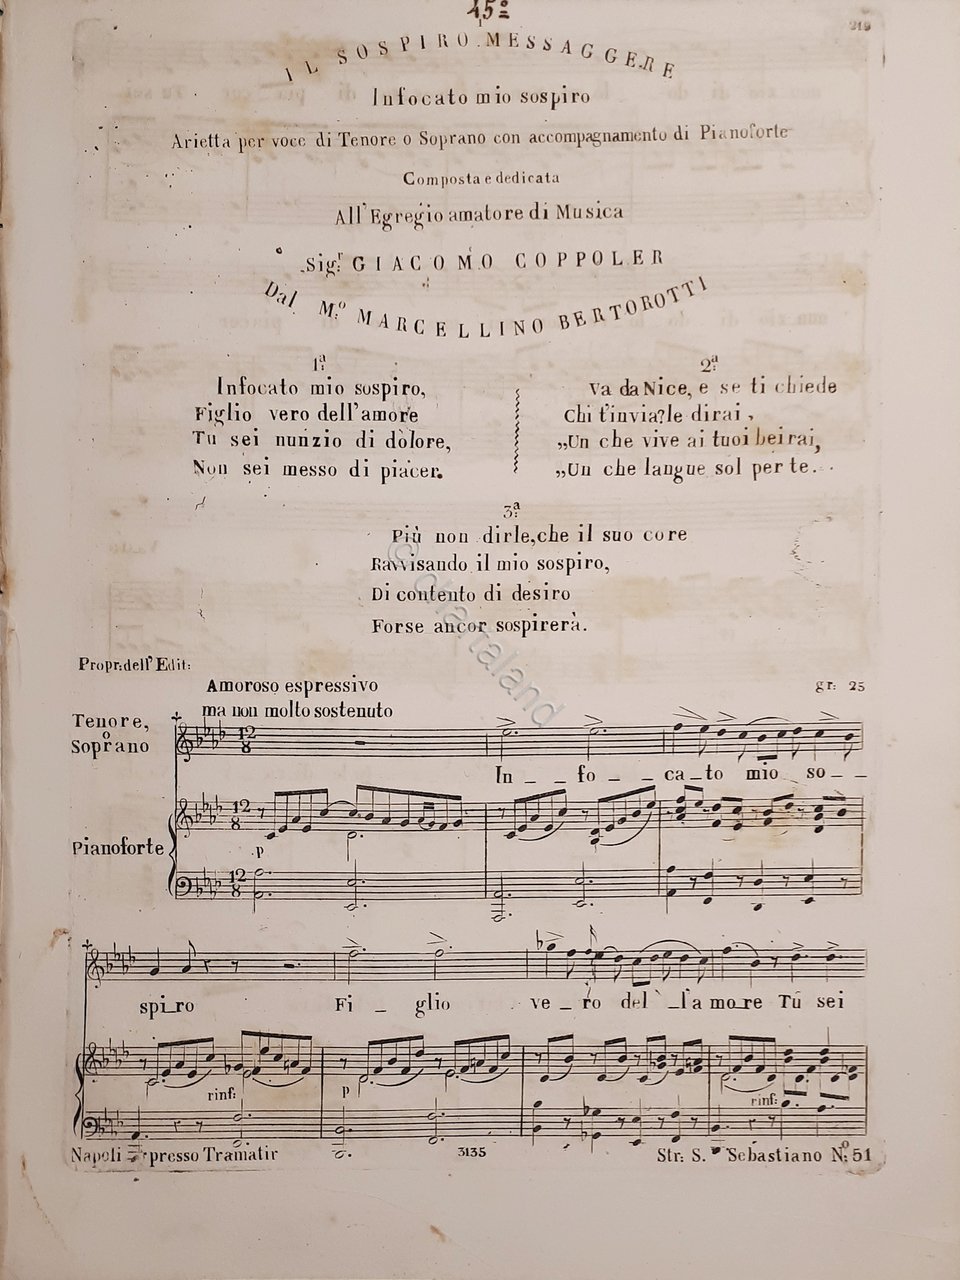 45º
219
IL SOSPIRO MESSAGGERE
Infocato mio sospiro
Arietta per voce di Tenore o Soprano con accompagnamento di Pianoforte
Composta e dedicata
All'Egregio amatore di Musica
Sigr. GIACOMO COPPOLER
Dal Mo. MARCELLINO BERTOROTTI
1ª.
Infocato mio sospiro,
Figlio vero dell'amore
Tu sei nunzio di dolore,
Non sei messo di piacer.
2ª.
Va da Nice, e se ti chiede
Chi t'invia? le dirai,
„Un che vive ai tuoi bei rai,
„Un che langue sol per te.
3ª
Più non dirle, che il suo core
Ravvisando il mio sospiro,
Di contento di desiro
Forse ancor sospirerà.
Propr: dell' Edit:
Amoroso espressivo
gr: 25
ma non molto sostenuto
Tenore,
o
Soprano
12
8
In _ _ fo _ _ ca _ to mio so _ _
Pianoforte
12
8
p
12
8
spi_ro Fi _ glio ve _ ro del _ l'a mo_re Tu sei
rinf:
p
rinf:
Napoli presso Tramatir
3135
Str: S. Sebastiano No. 51
© chartaland